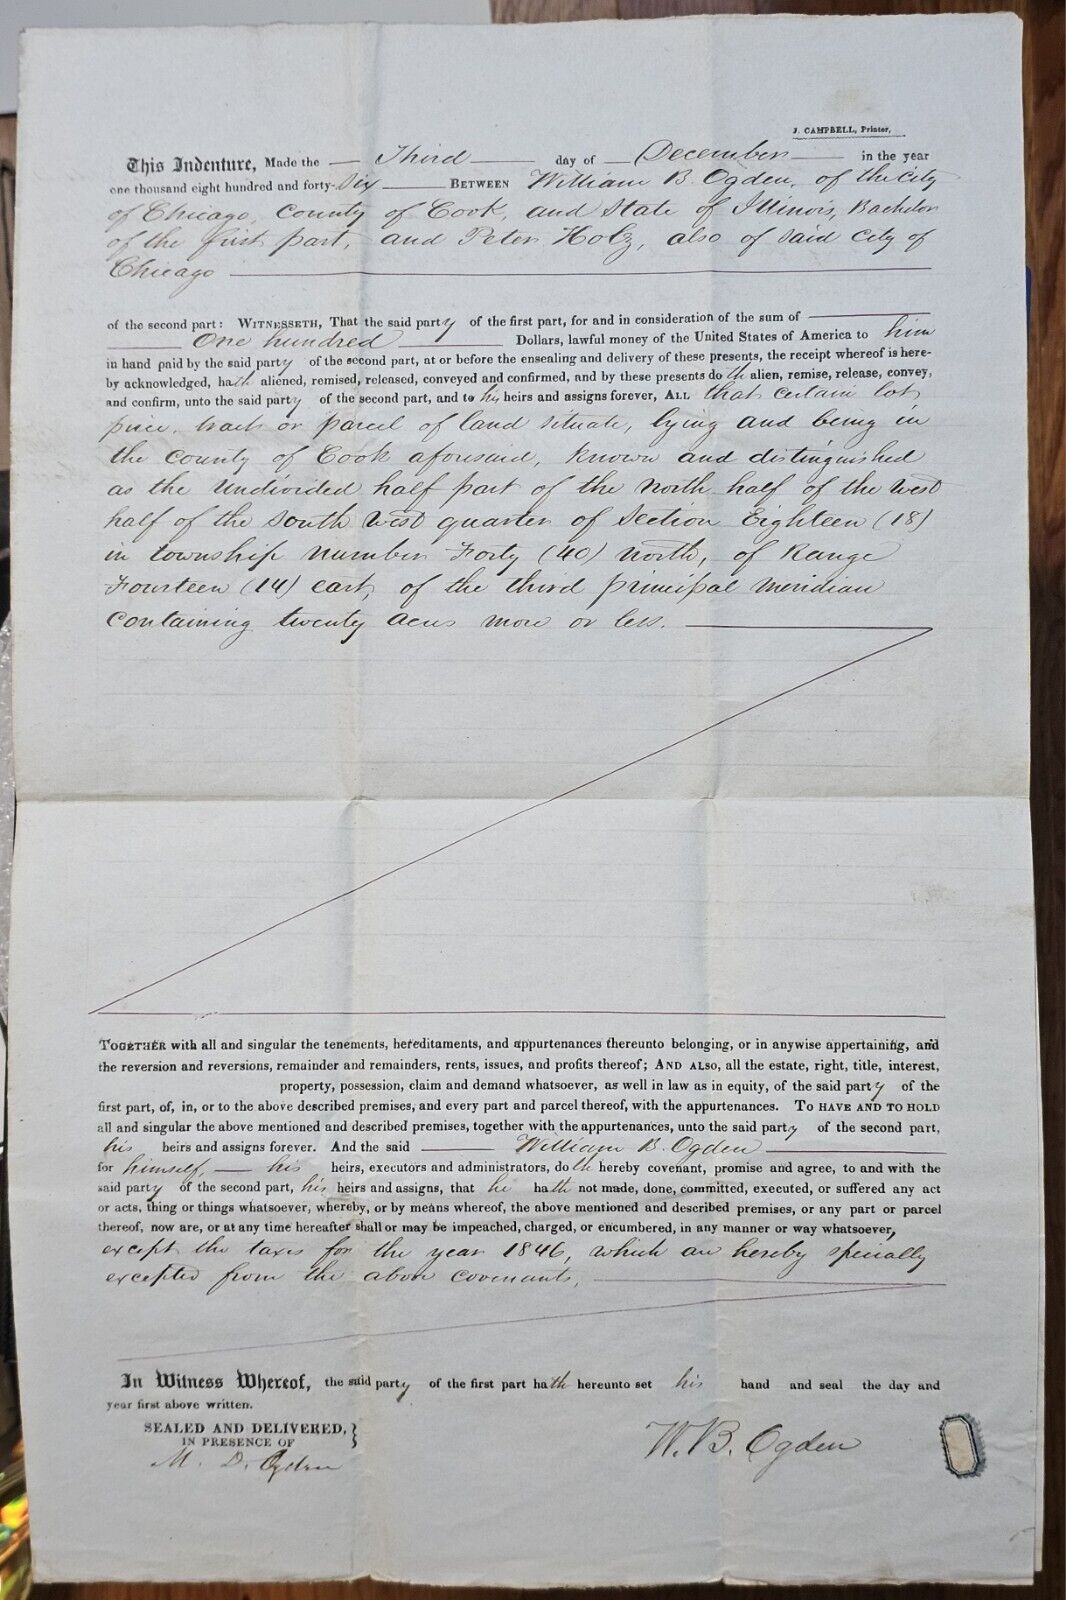 J. CAMPBELL, Printer,
This Indenture, Made the Third day of December in the year
one thousand eight hundred and forty-six BETWEEN William B. Ogden, of the City
of Chicago, County of Cook, and State of Illinois, Bachelor
of the first part, and Peter Holz, also of said City of
Chicago
of the second part: WITNESSETH, That the said party of the first part, for and in consideration of the sum of
One hundred Dollars, lawful money of the United States of America to him
in hand paid by the said party of the second part, at or before the ensealing and delivery of these presents, the receipt whereof is here-
by acknowledged, hath aliened, remised, released, conveyed and confirmed, and by these presents doth alien, remise, release, convey,
and confirm, unto the said party of the second part, and to his heirs and assigns forever, ALL that certain lot
piece, tract or parcel of land situate, lying and being in
the County of Cook aforesaid, known and distinguished
as the undivided half part of the north half of the west
half of the south west quarter of Section Eighteen (18)
in township number Forty (40) north, of Range
Fourteen (14) east, of the third principal meridian
containing twenty acres more or less.
TOGETHER with all and singular the tenements, hereditaments, and appurtenances thereunto belonging, or in anywise appertaining, and
the reversion and reversions, remainder and remainders, rents, issues, and profits thereof; AND ALSO, all the estate, right, title, interest,
property, possession, claim and demand whatsoever, as well in law as in equity, of the said party of the
first part, of, in, or to the above described premises, and every part and parcel thereof, with the appurtenances. TO HAVE AND TO HOLD
all and singular the above mentioned and described premises, together with the appurtenances, unto the said party of the second part,
his heirs and assigns forever. And the said William B. Ogden
for himself, his heirs, executors and administrators, doth hereby covenant, promise and agree, to and with the
said party of the second part, his heirs and assigns, that he hath not made, done, committed, executed, or suffered any act
or acts, thing or things whatsoever, whereby, or by means whereof, the above mentioned and described premises, or any part or parcel
thereof, now are, or at any time hereafter shall or may be impeached, charged, or encumbered, in any manner or way whatsoever,
except the taxes for the year 1846, which are hereby specially
excepted from the above covenants,
In Witness Whereof, the said party of the first part hath hereunto set his hand and seal the day and
year first above written.
SEALED AND DELIVERED,
IN PRESENCE OF
M. D. Ogden
W. B. Ogden